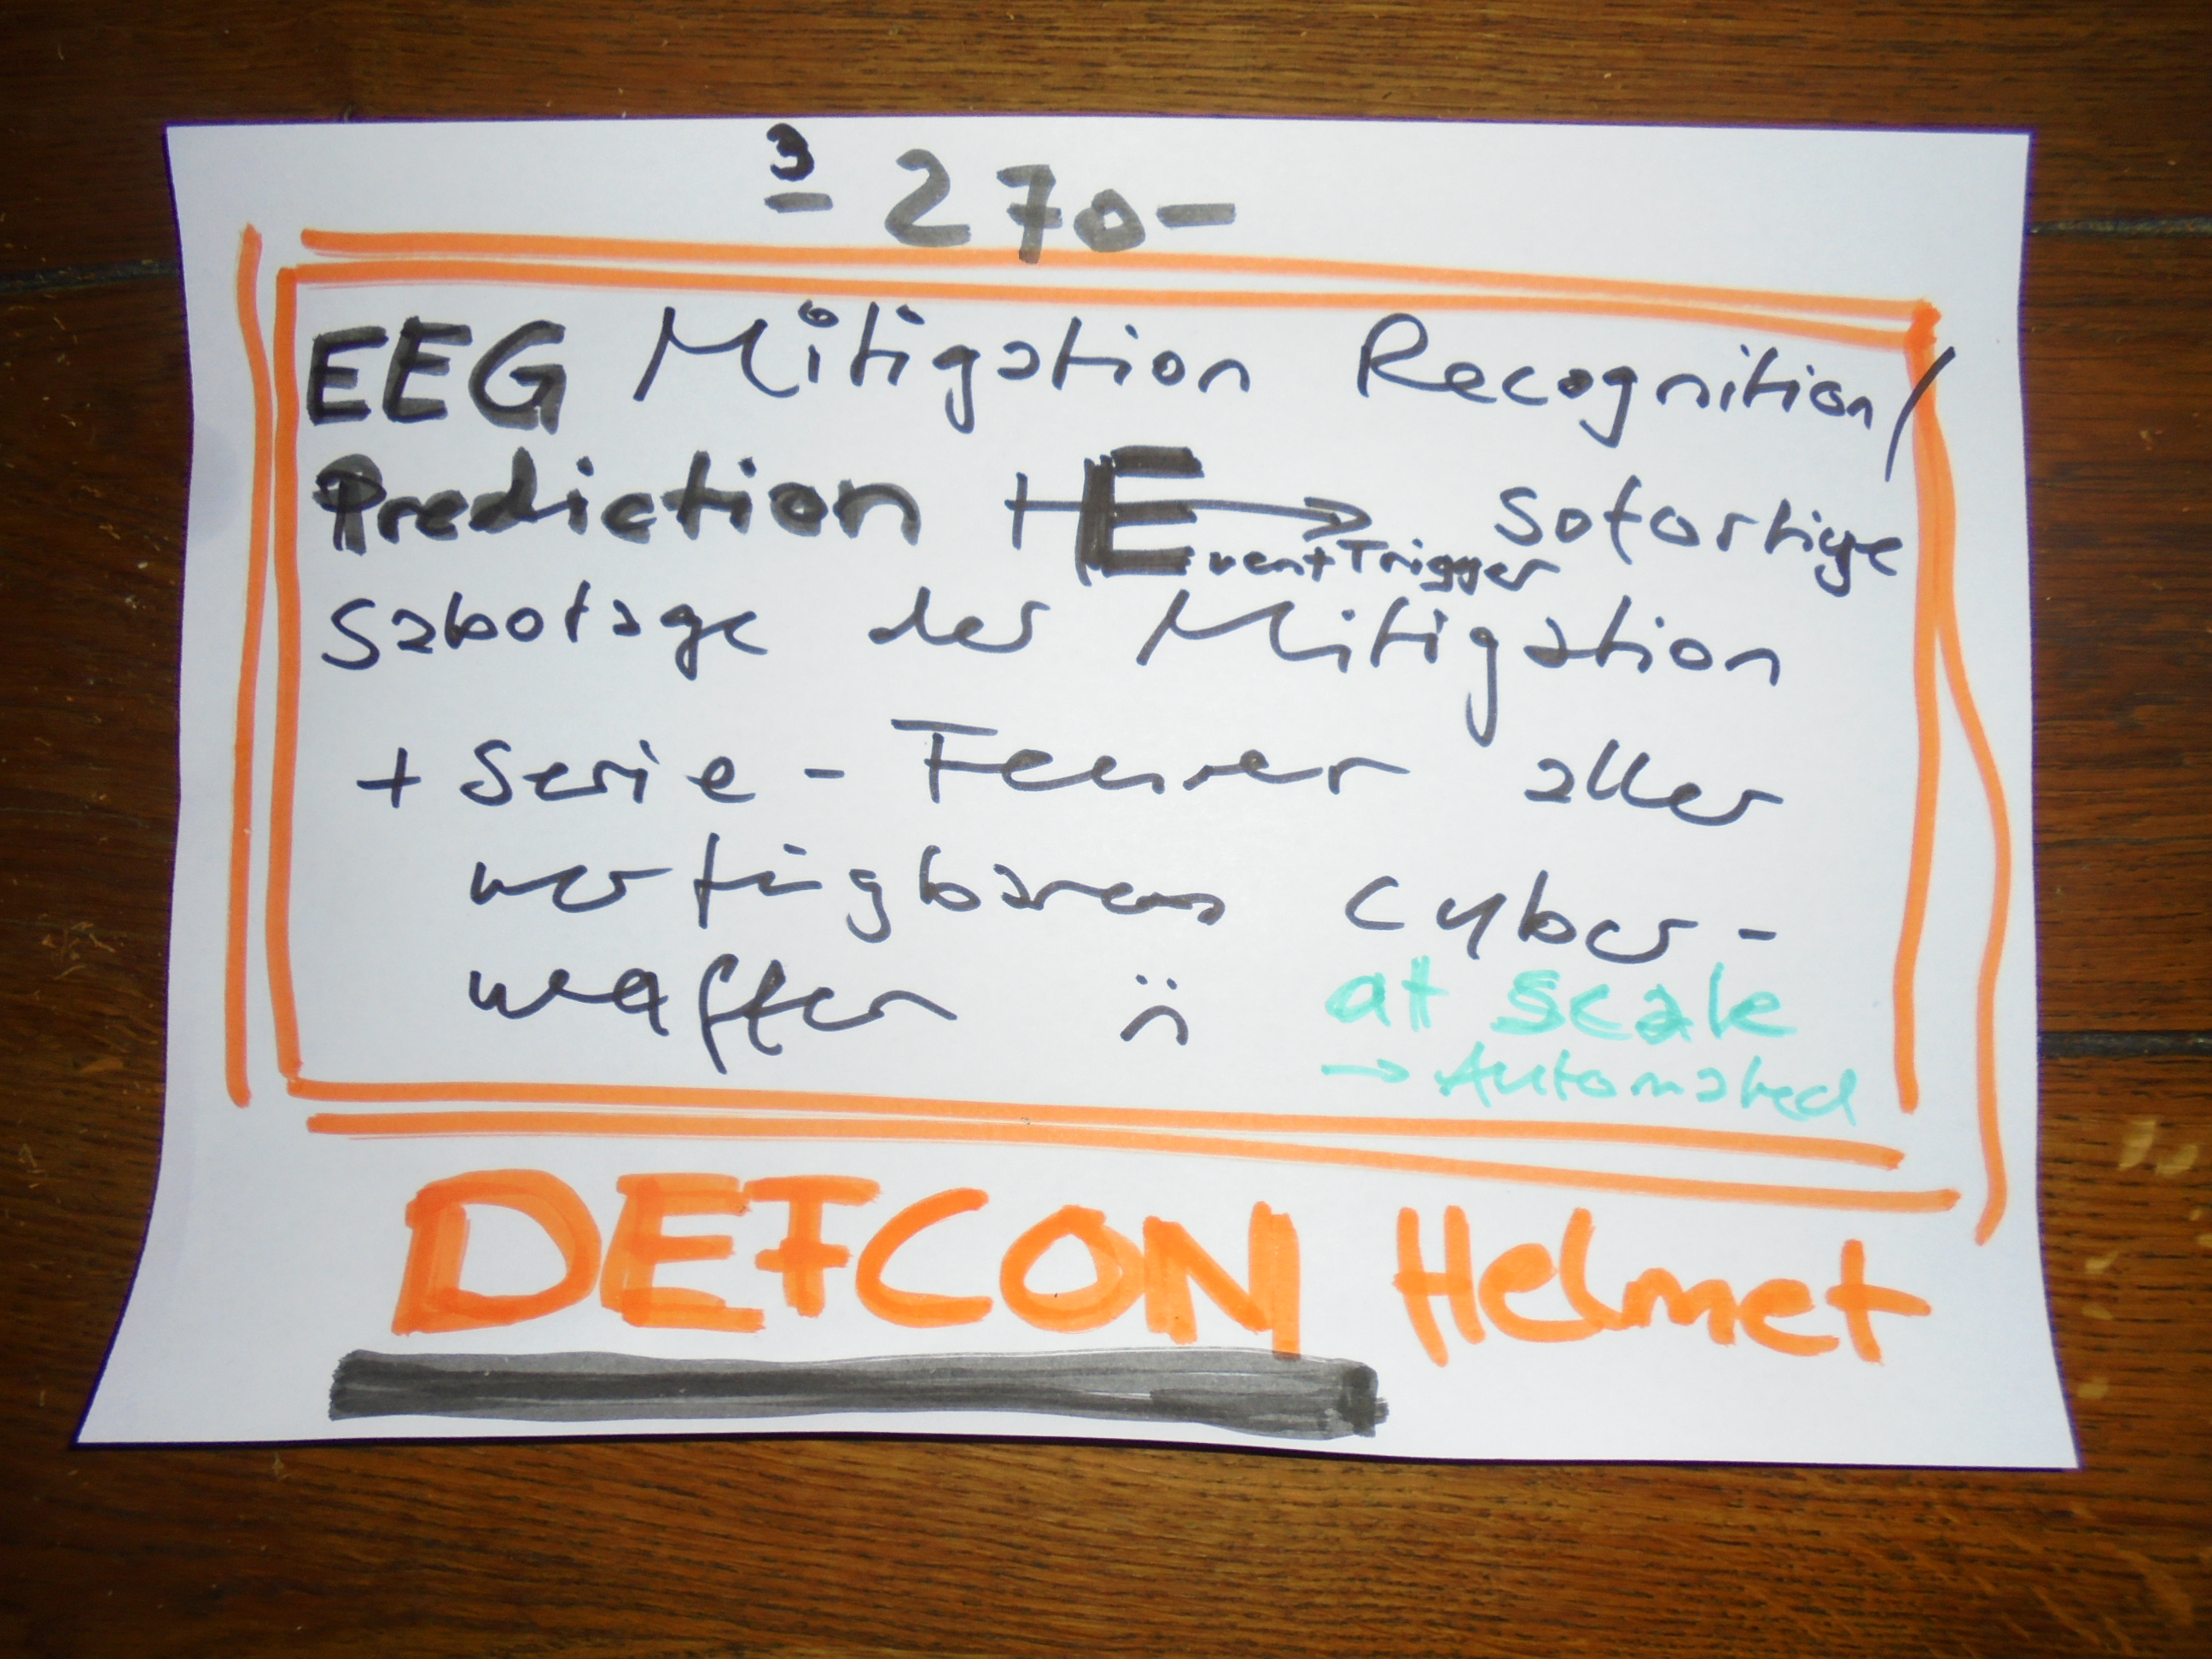 3
- 270 -
EEG Mitigation Recognition/
Prediction + Event Trigger → sofortige
Sabotage der Mitigation
+ Serie - Feuer aller
verfügbaren Cyber-
waffen ∩̈ at scale
→ Automated
DEFCON Helmet